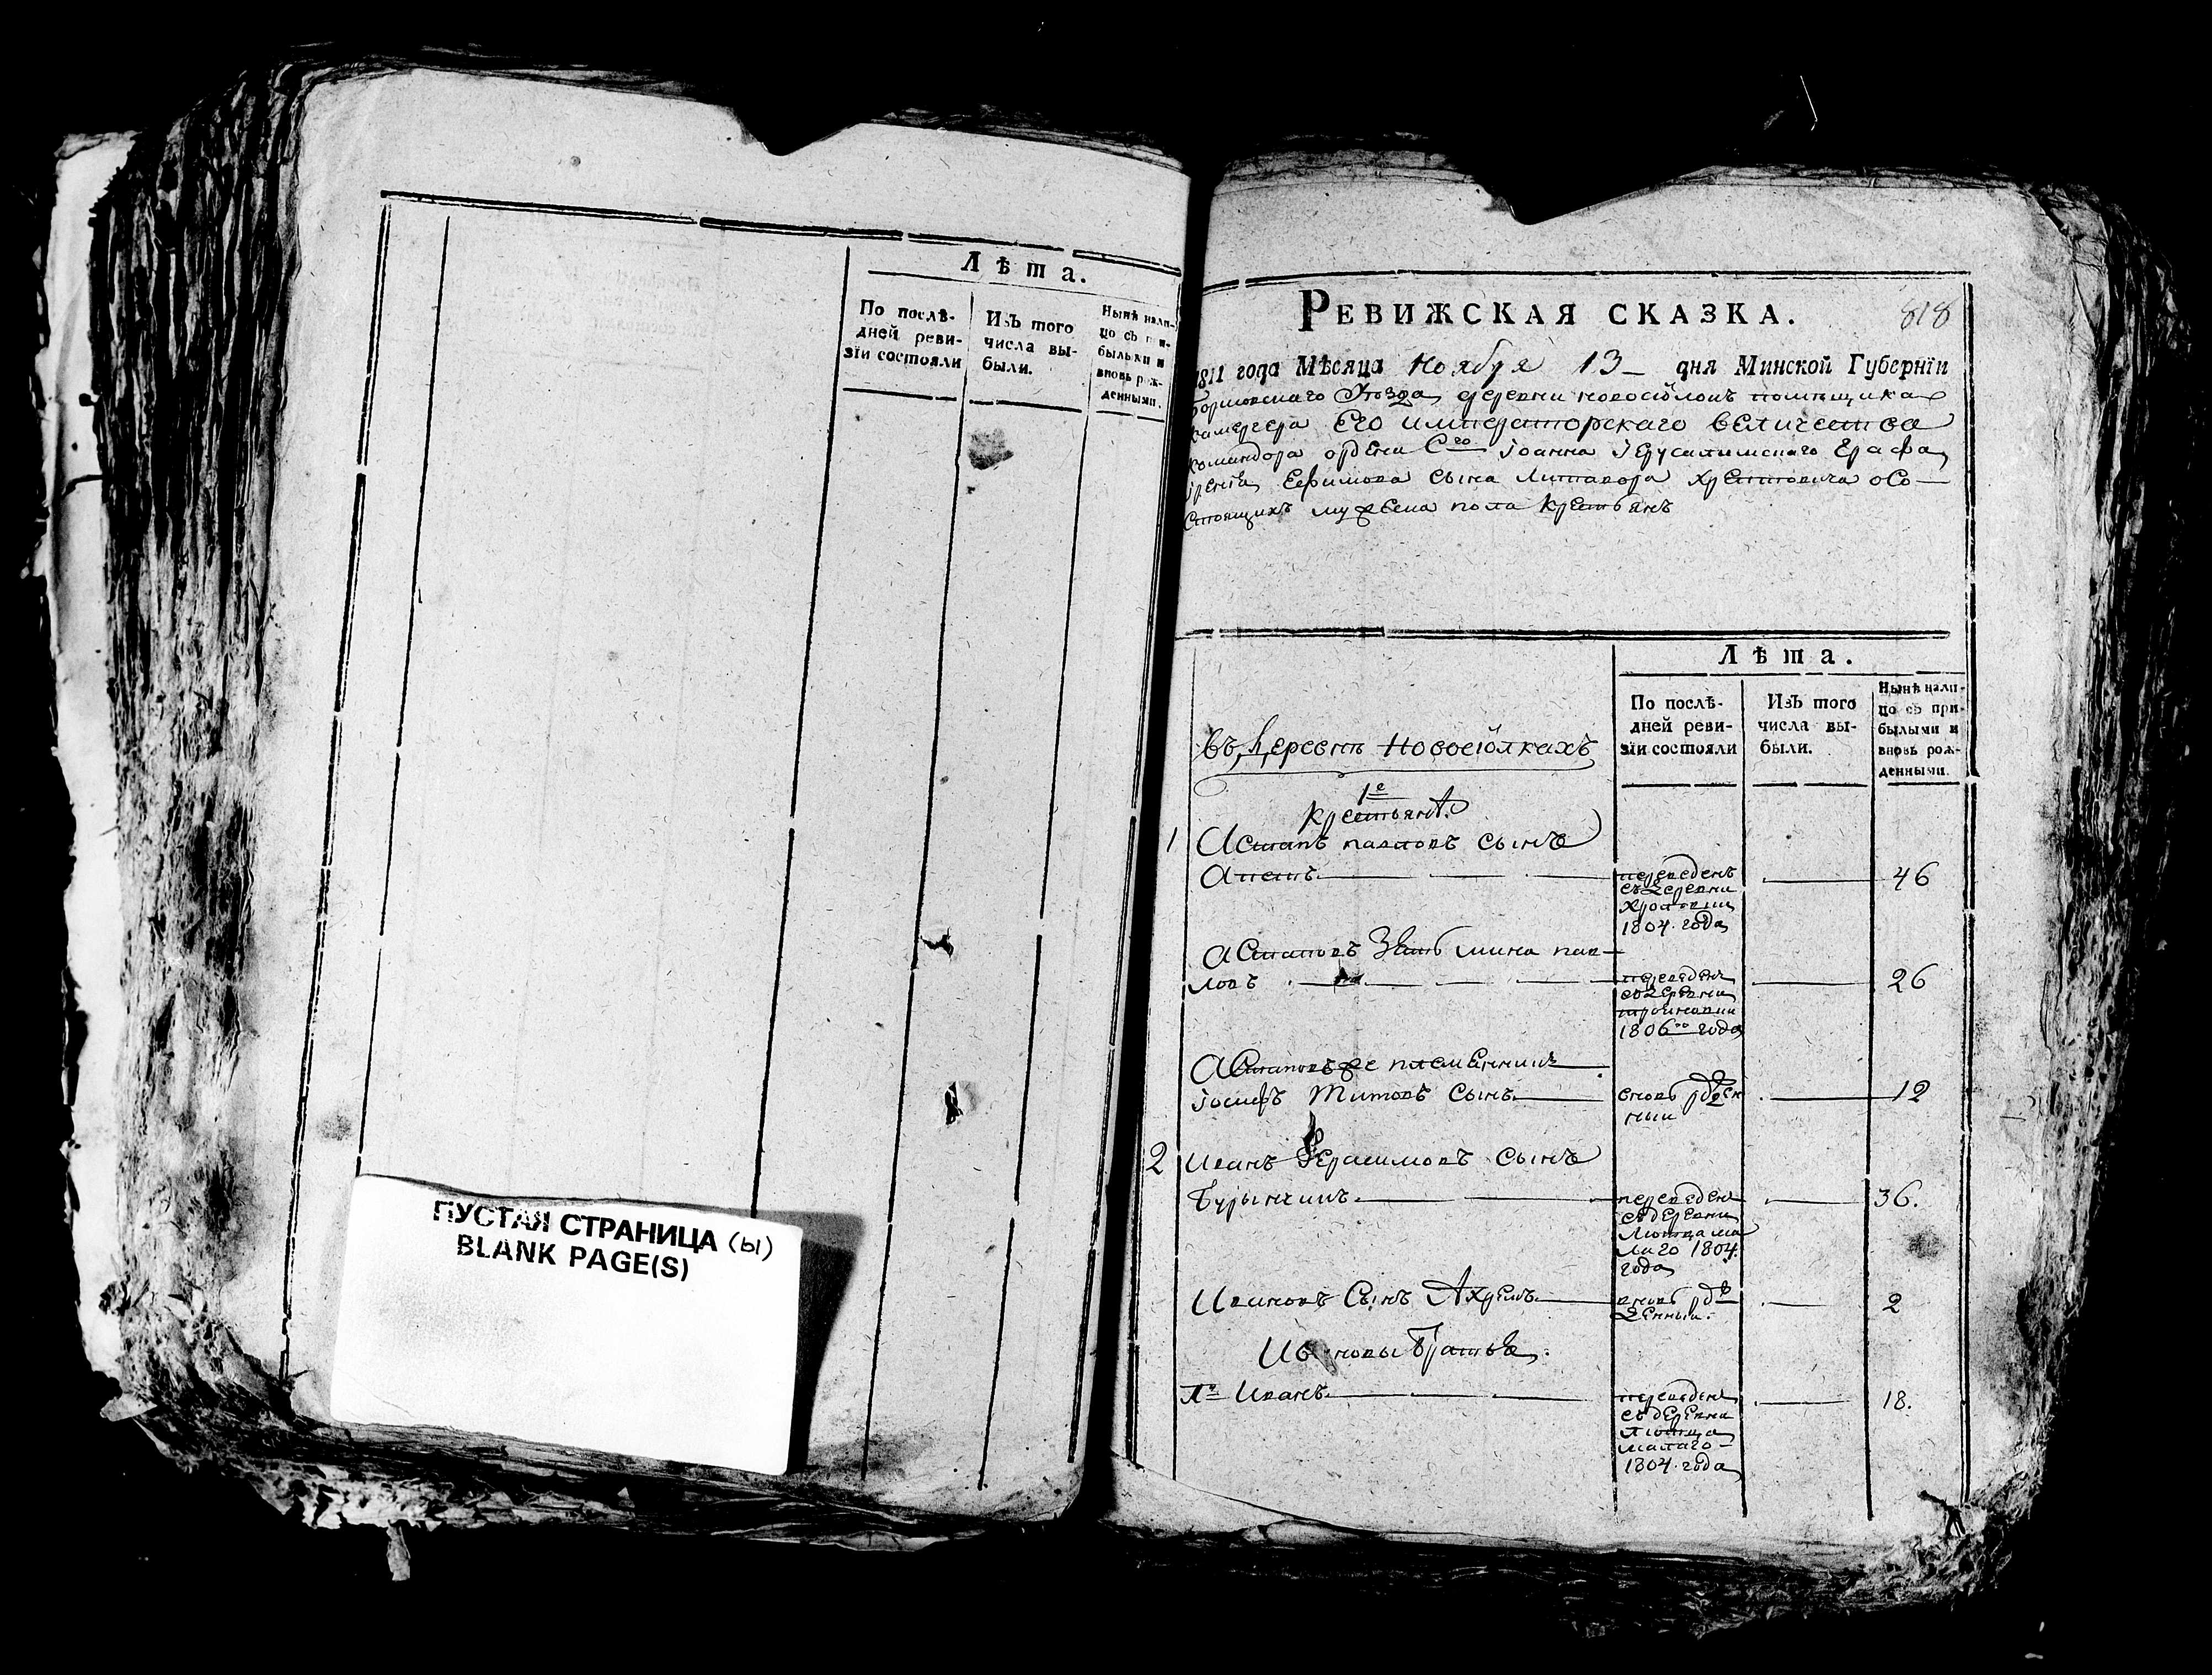 Лѣта.
По послѣ-
дней реви-
зїи состояли
Изъ того
числа вы-
были.
Нынѣ нали-
цо съ при-
былыми и
вновь рож-
денными.
ПУСТАЯ СТРАНИЦА (ы)
BLANK PAGE(S)
РЕВИЖСКАЯ СКАЗКА.
818
1811 года Мѣсяца Ноября 13 дня Минской Губернїи
Борисовскаго Уѣзда деревни новосіолокъ помѣщика
камергера Его императорскаго величества
командора ордена Сго Іоанна Іерусалимскаго Графа
Ефимова сына Литавора Хрептовича о Со-
стоящихъ мужеска пола крестьянъ
Лѣта.
По послѣ-
дней реви-
зїи состояли
Изъ того
числа вы-
были.
Нынѣ нали-
цо съ при-
былыми и
вновь рож-
денными.
въ деревнѣ Новосіолкахъ
1е
крестьянѣ
1 Астапъ павловъ сынъ
переведенъ 46
съ деревни
1804 года
Астаповъ Зять мина пав-
ловъ переведенъ 26
съ деревни
1806го года
Астаповъ же племенникъ
Іосифъ Титовъ Сынъ вновь рожден 12
ный
2 Иванъ Герасимовъ сынъ
переведенъ 36.
съ деревни
ма
лаго 1804
года
Ивановъ Сынъ Ахремъ вновь рож 2
денный.
Ивановы Братья:
1й Иванъ переведенъ 18.
съ деревни
малаго
1804 года